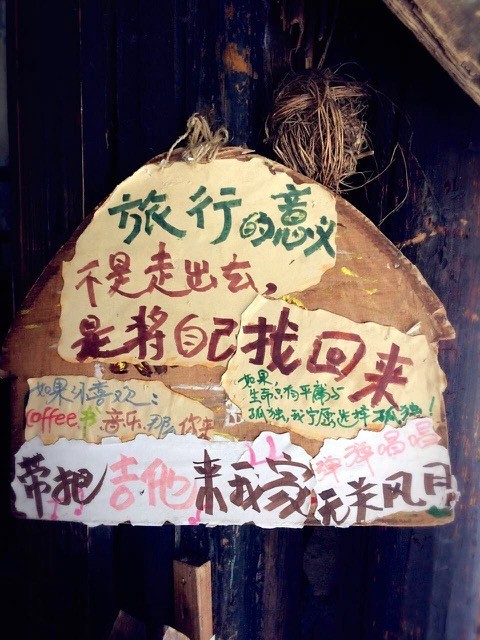 旅行的意义
不是走出去，
是将自己找回来
如果你喜欢：
coffee 书 音乐.那 你来
如果
生命只有平庸与
孤独，我宁愿选择孤独！
带把吉他来我家
弹弹唱唱
无关风月